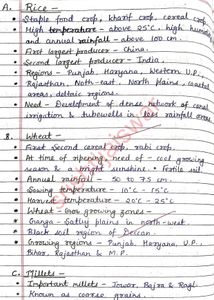 A. Rice -
→ Staple food crop, kharif crop, cereal crop
→ High temperature - above 25°C, high humi
and annual rainfall - above 100 cm.
→ First largest producer - China.
→ Second largest producer - India.
→ Regions - Punjab, Haryana, Western U.P.,
Rajasthan, North-east, North plains, coastal
areas, deltaic regions.
→ Need - Development of dense network of canal
irrigation & tubewells in less rainfall areas
B. Wheat -
→ First second cereal crop, rabi crop.
→ At time of ripening, need of - cool growing
season & bright sunshine. • Fertile soil.
→ Annual rainfall - 50 to 75 cm.
→ Sowing temperature - 10°C - 15°C
→ Harvest temperature - 20°C - 25°C
→ Wheat - two growing zones -
- Ganga-Satluj plains in north-west.
- Black soil region of Deccan.
→ Growing regions - Punjab, Haryana, U.P.,
Bihar, Rajasthan & M.P.
C. Millets -
→ Important millets - Jowar, Bajra & Ragi.
Known as coarse grains.